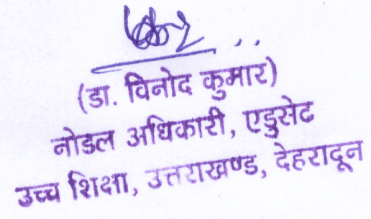 (डा. विनोद कुमार)
नोडल अधिकारी, एडुसेट
उच्च शिक्षा, उत्तराखण्ड, देहरादून